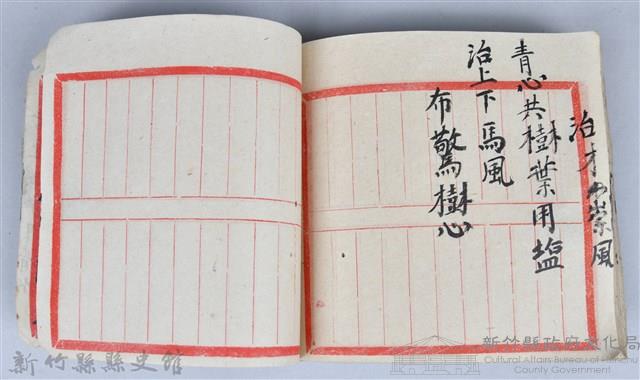 治才崇風
青心共樹葉用塩
治上下馬風
布驚樹心
新竹縣縣史館
新竹縣政府文化局
Cultural Affairs Bureau of Hsinchu
County Government